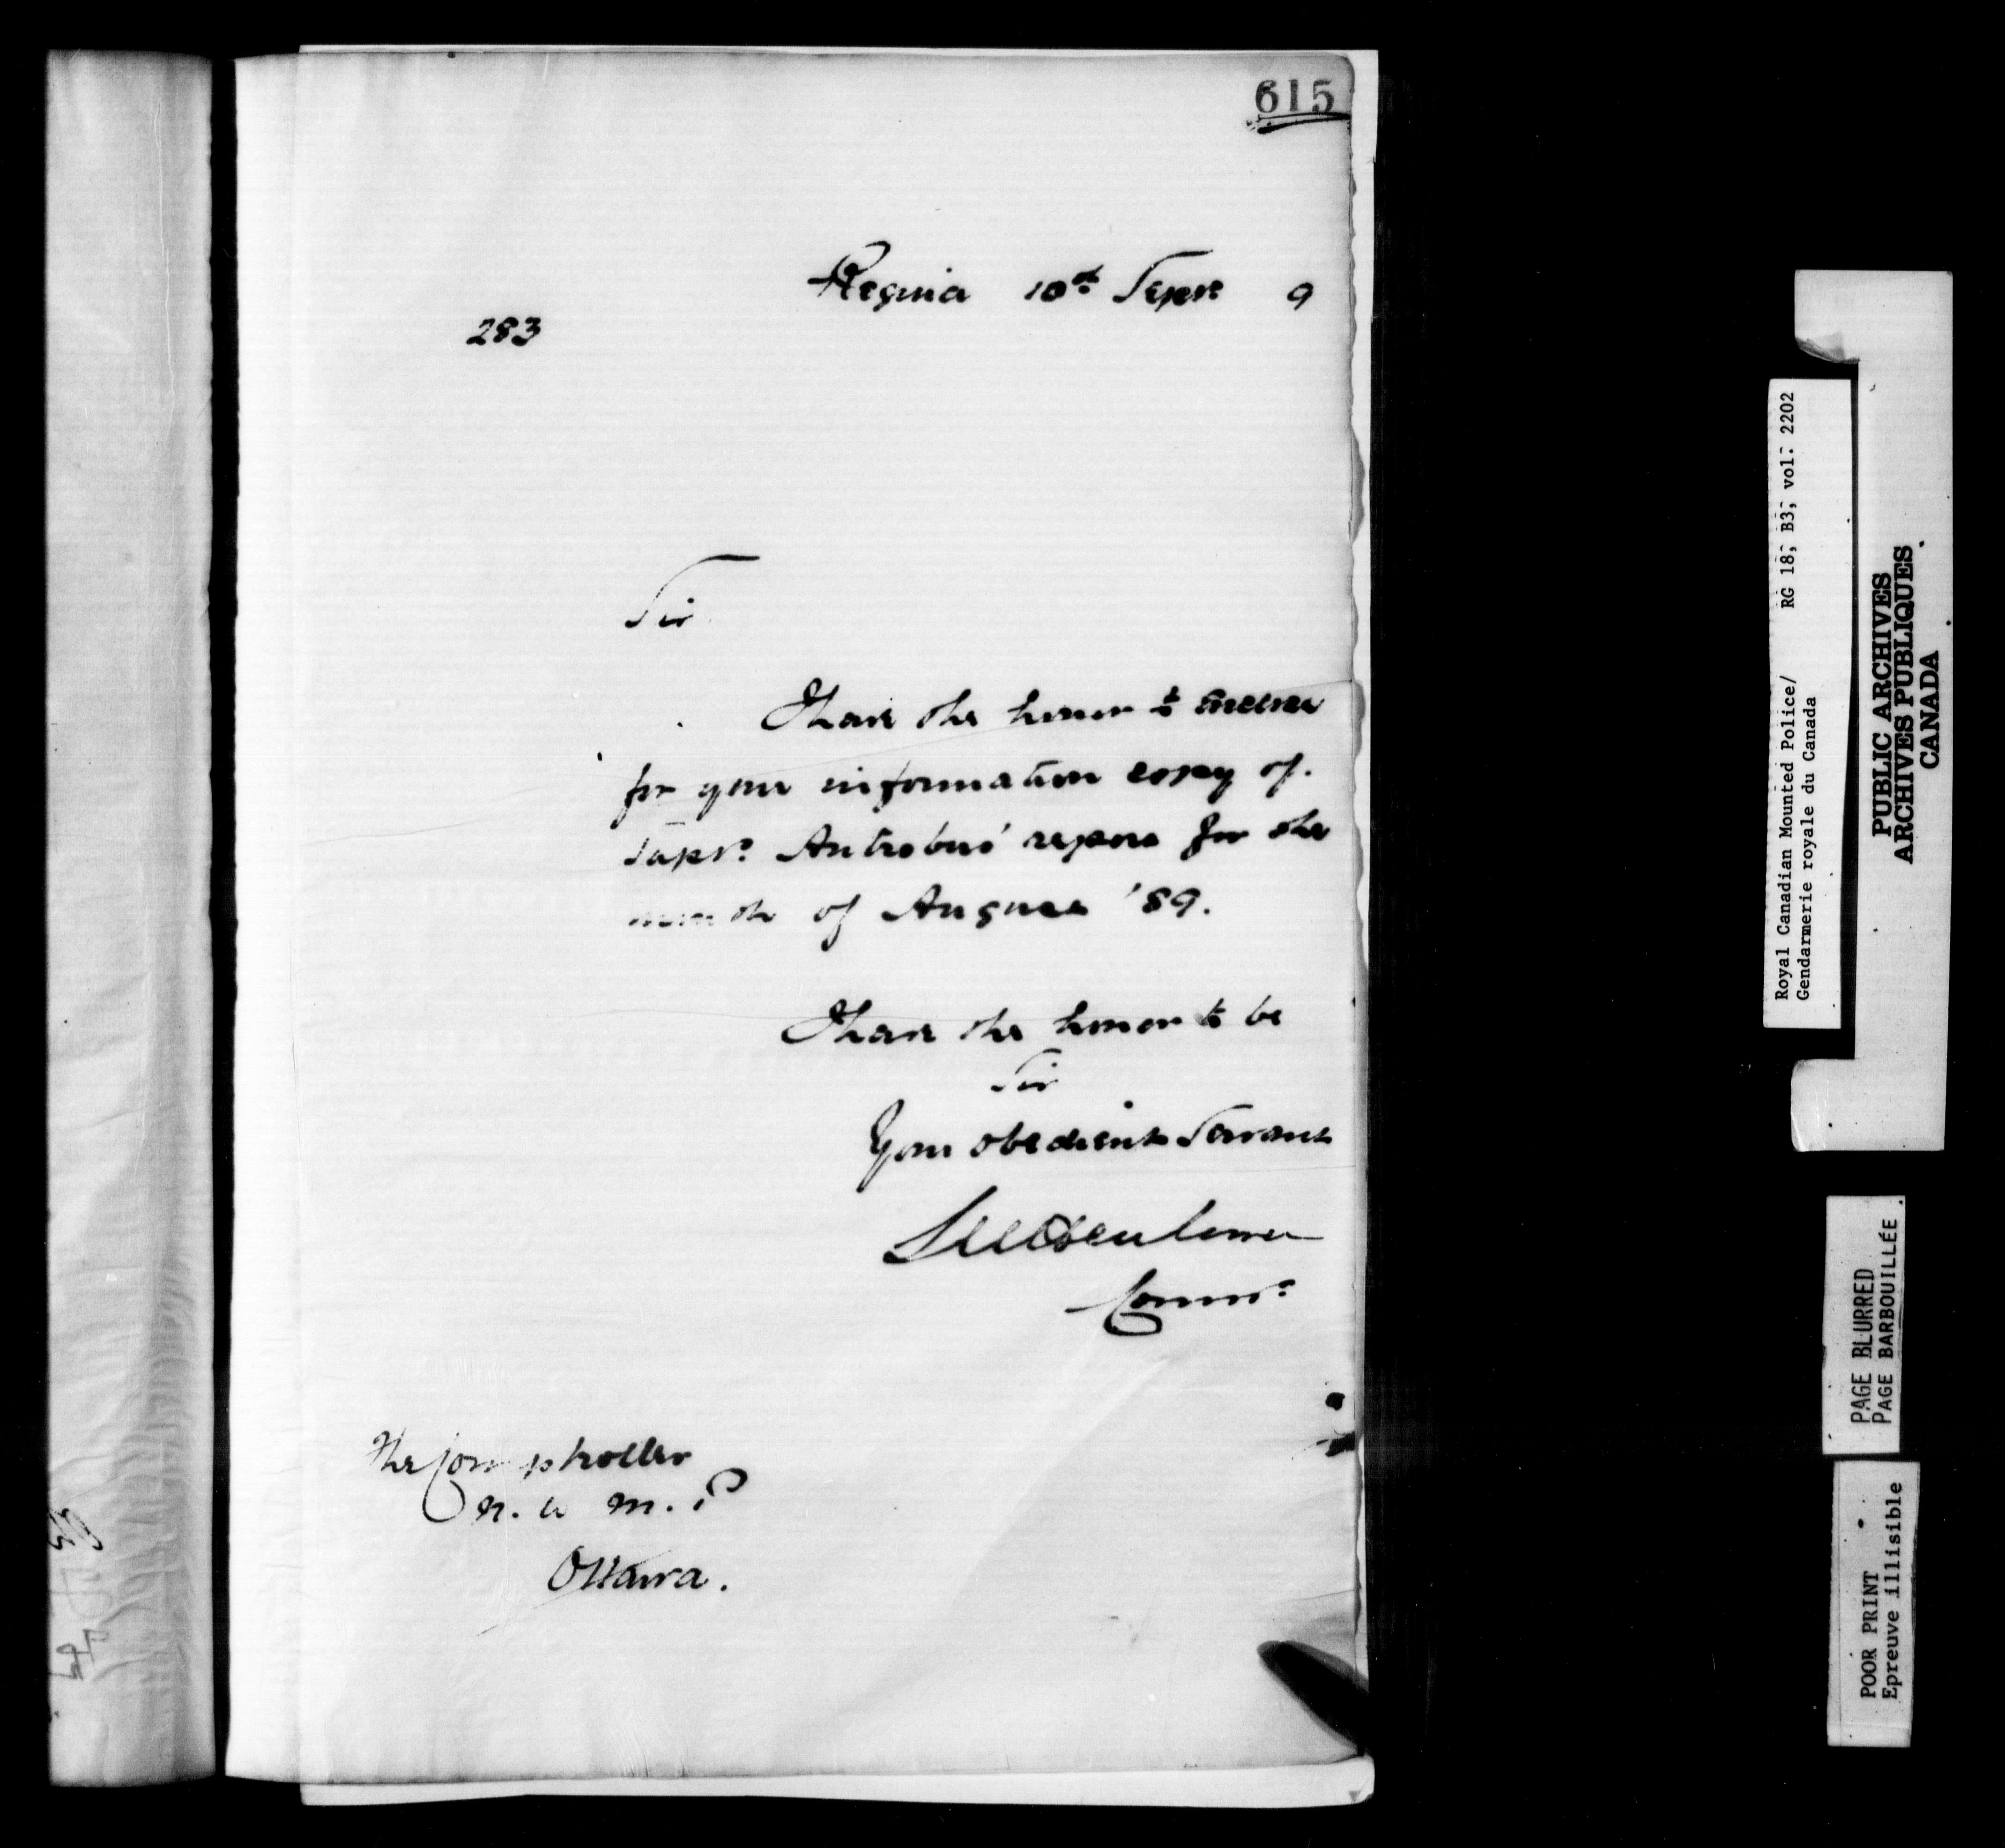 615
Regina 10th Septr 9
283
Sir
I have the honor to enclose
for your information copy of
Supt. Antrobus' report for the
month of August '89.
I have the honor to be
Sir
Your obedient Servant
Commr.
The Comptroller
N. W. M. P
Ottawa.
Royal Canadian Mounted Police/ RG 18, B3, vol. 2202
Gendarmerie royale du Canada
PUBLIC ARCHIVES
ARCHIVES PUBLIQUES
CANADA
PAGE BLURRED
PAGE BARBOUILLÉE
POOR PRINT
Epreuve illisible